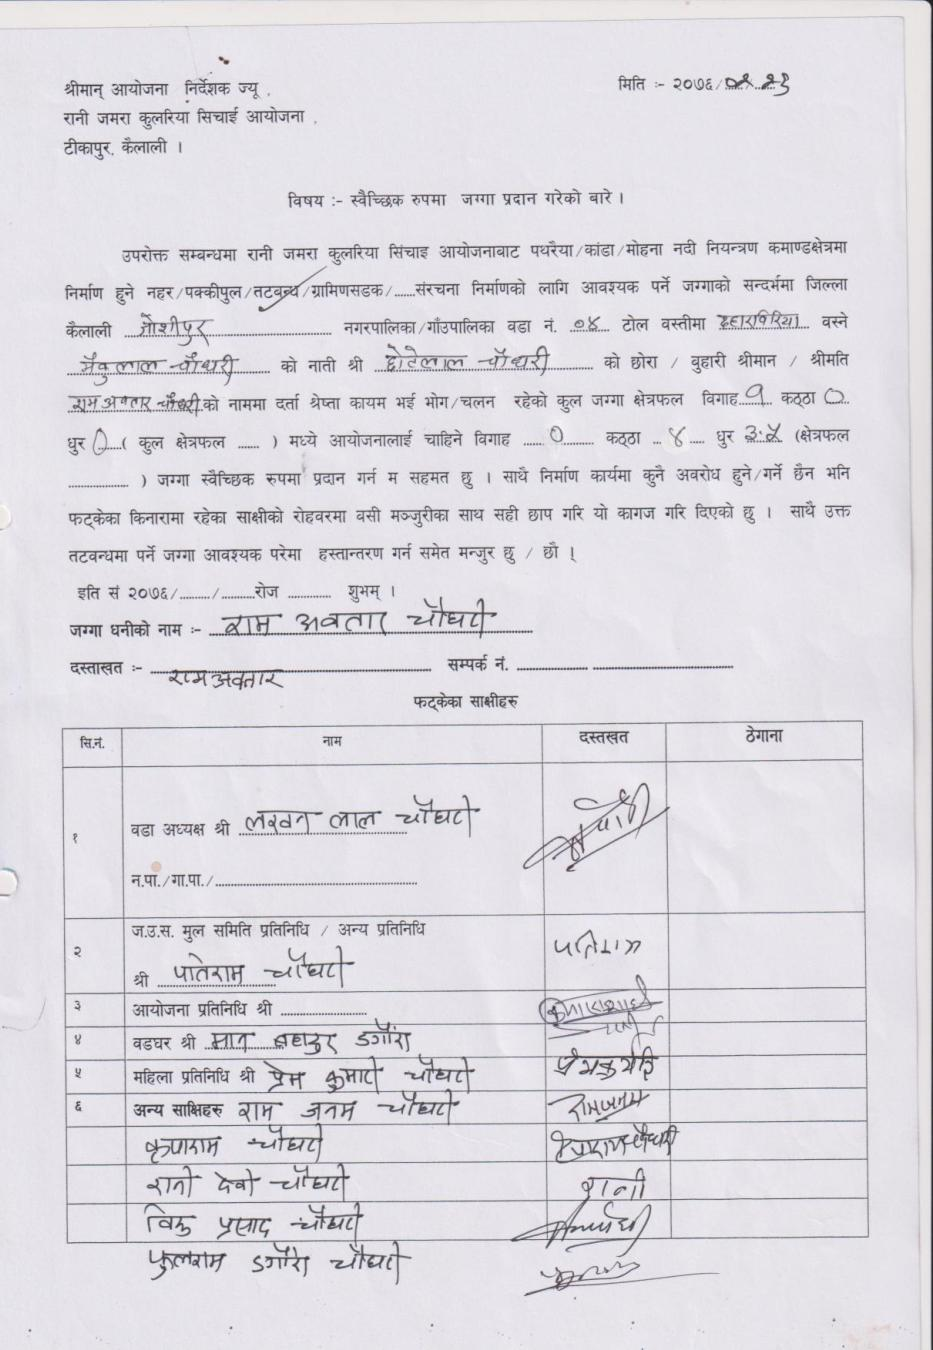 श्रीमान् आयोजना निर्देशक ज्यू ,
मिति :- २०७६/
रानी जमरा कुलरिया सिचाई आयोजना ,
टीकापुर, कैलाली ।
विषय :- स्वैच्छिक रुपमा जग्गा प्रदान गरेको बारे ।
उपरोक्त सम्बन्धमा रानी जमरा कुलरिया सिंचाइ आयोजनाबाट पथरैया/कांडा/मोहना नदी नियन्त्रण कमाण्डक्षेत्रमा
निर्माण हुने नहर/पक्कीपुल/तटबन्ध/ग्रामिणसडक/......संरचना निर्माणको लागि आवश्यक पर्ने जग्गाको सन्दर्भमा जिल्ला
कैलाली जोशीपुर नगरपालिका/गाँउपालिका वडा नं. ०४ टोल वस्तीमा वस्ने
मैकुलाल चौधरी को नाती श्री छोटेलाल चौधरी को छोरा / वुहारी श्रीमान / श्रीमति
राम अवतार चौधरी को नाममा दर्ता श्रेष्ता कायम भई भोग/चलन रहेको कुल जग्गा क्षेत्रफल विगाह १ कठ्ठा ०
धुर ० ( कुल क्षेत्रफल ...... ) मध्ये आयोजनालाई चाहिने विगाह ० कठ्ठा ४ धुर ३.५ (क्षेत्रफल
................ ) जग्गा स्वैच्छिक रुपमा प्रदान गर्न म सहमत छु । साथै निर्माण कार्यमा कुनै अवरोध हुने/गर्ने छैन भनि
फट्केका किनारामा रहेका साक्षीको रोहवरमा वसी मञ्जुरीका साथ सही छाप गरि यो कागज गरि दिएको छु । साथै उक्त
तटवन्धमा पर्ने जग्गा आवश्यक परेमा हस्तान्तरण गर्न समेत मन्जुर छु / छौ ।
इति सं २०७६/......../.........रोज ............ शुभम् ।
जग्गा धनीको नाम :- राम अवतार चौधरी
दस्ताखत :- रामअवतार सम्पर्क नं. .................. ....................................
फट्केका साक्षीहरु
सि.नं. नाम दस्तखत ठेगाना
१ वडा अध्यक्ष श्री लखन लाल चौधरी
न.पा./गा.पा./......................................................
२ ज.उ.स. मुल समिति प्रतिनिधि / अन्य प्रतिनिधि
श्री पतिराम चौधरी पतिराम
३ आयोजना प्रतिनिधि श्री .......................
४ वडघर श्री मान बहादुर डगौरा
५ महिला प्रतिनिधि श्री प्रेम कुमारी चौधरी
६ अन्य साक्षिहरु राम जनम चौधरी रामजनम
कृपाराम चौधरी कृपाराम चौधरी
रानी देवी चौधरी रानी
प्रसाद चौधरी
फुलराम डगौरा चौधरी